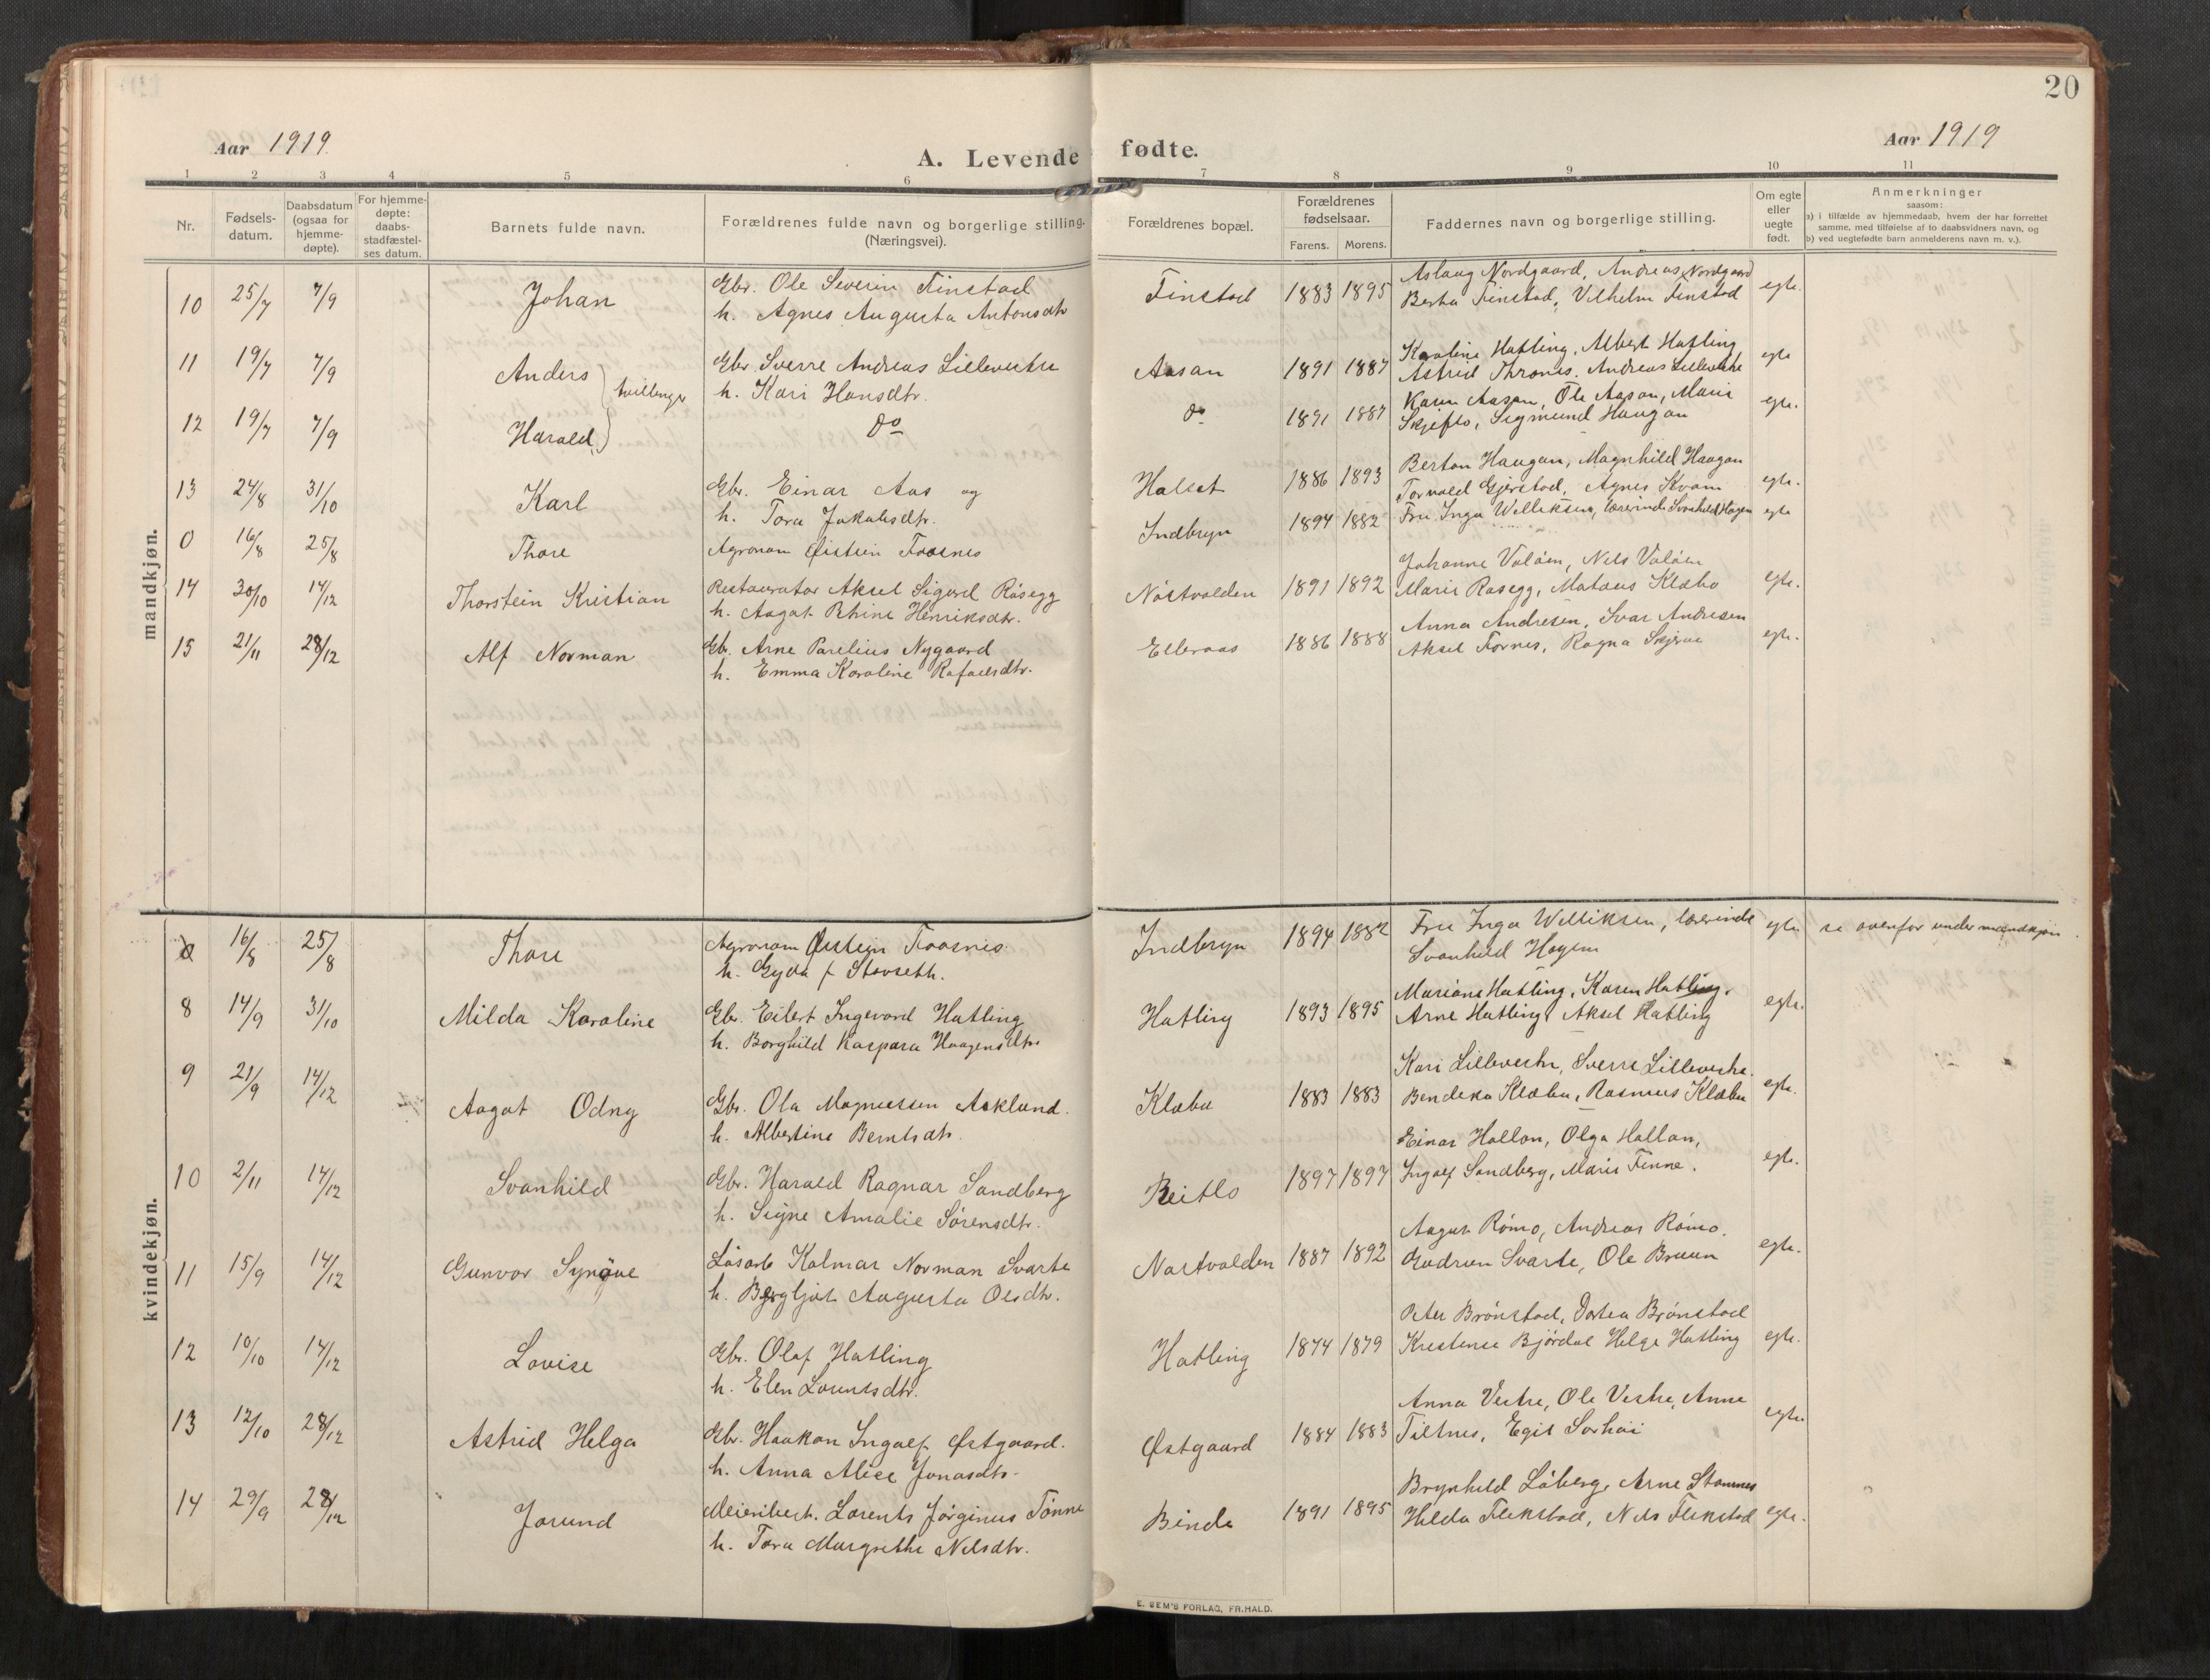 20
Aar 1919
Aar 1919
A. Levende fødte.
1 2 3 4 5 6 7 8 9 10 11
Nr.
Fødsels-
datum.
Daabsdatum
(ogsaa for
hjemme-
døpte).
For hjemme-
døpte:
daabs-
stadfæstel-
ses datum.
Barnets fulde navn.
Forældrenes fulde navn og borgerlige stilling.
(Næringsvei).
Forældrenes bopæl.
Forældrenes
fødselsaar.
Farens. Morens.
Faddernes navn og borgerlige stilling.
Om egte
eller
uegte
født.
Anmerkninger
saasom:
a) i tilfælde av hjemmedaab, hvem der har forrettet
samme, med tilføielse af to daabsvidners navn, og
b) ved uegtefødte barn anmelderens navn m. v.).
mandkjøn.
10 25/7 7/9 Johan Gbr. Ole Severin Finstad
h. Agnes Augusta Antonsdtr
Finstad 1883 1895 Aslaug Nordgaard, Andreas Nordgaard
Berta Finstad, Vilhelm Finstad egte.
11 19/7 7/9 Anders tvillinger Gbr. Sverre Andreas Lillevestre
h. Kari Hansdtr.
Aasan 1891 1887 Karoline Hatling, Albert Hatling
Astrid Thronæs. Andreas Lillevestre egte
12 19/7 7/9 Harald do
do 1891 1887 Karen Aasan, Ole Aasan, Marie
Skjeflo, Sigmund Haugan egte.
13 24/8 31/10 Karl Gbr. Einar Aas og
h. Tora Jakobsdtr.
Halset 1886 1893 Berton Haugan, Magnhild Haugan
Torvald Gjerstad, Agnes Kvam egte.
0 16/8 25/8 Thore Agronom Øistein Foosnes
Indbryn 1894 1882 Fru Inga Williksen, lærerinde Svanhild Hagen egte
14 30/10 14/12 Thorstein Kristian Restauratør Aksel Sigurd Røsegg
h. Aagot Rhine Henriksdtr.
Nöstvolden 1891 1892 Johanne Valøen, Nels Valøen
Marie Rosegg, Mataus Klæbo egte.
15 21/11 28/12 Alf Norman Gb. Arne Parelius Nygaard
h. Emma Karoline Rafaelsdtr.
Elleraas 1886 1888 Anna Andresen, Ivar Andresen
Aksel Fornes, Ragna Skjerve egte.
kvindekjøn.
0 16/8 25/8 Thore Agronom Øistein Foosnes
h. Gyda f Stavseth.
Indbryn 1894 1882 Fru Inga Williksen, lærerinde
Svanhild Hagen egte se ovenfor under mandkjøn.
8 14/9 31/10 Milda Karoline Gbr. Eilert Ingevard Hatling
h. Borghild Kaspara Haagensdtr
Hatling 1893 1895 Mariane Hatling, Karen Hatling.
Arne Hatling, Aksel Hatling egte.
9 21/9 14/12 Aagot Odny Gbr. Ola Magnussen Aaklund.
h. Albertine Berntsdtr.
Klæbu 1883 1883 Kari Lillevestre, Sverre Lillevestre.
Bendeka Klæbu, Rasmus Klæbu egte.
10 2/11 14/12 Svanhild Gbr. Harald Ragnar Sandberg
h. Signe Amalie Sørensdtr.
Reitlo 1897 1897 Einar Hallan, Olga Hallan,
Ingolf Sandberg, Marie Finne. egte.
11 15/9 14/12 Gunvor Synøve Løsarb Kolmar Norman Svarte
h. Bergljot Augusta Olsdtr.
Nostvolden 1887 1892 August Rømo, Andreas Rømo.
Gudrun Svarte, Ole Bruun egte.
12 10/10 14/12 Lovise Gbr. Olaf Hatling
h. Elen Lorntsdtr.
Hatling 1874 1879 Peter Brønstad, Dortea Brønstad
Krestense Bjørdal Helge Hatling egte.
13 12/10 28/12 Astrid Helga Gbr. Haakon Ingolf Østgaard.
h. Anna Alice Jonasdtr.
Østgaard 1884 1883 Anna Vestre, Ole Vestre, Anne
Tiltnes, Egil Sorhøi egte
14 29/9 28/12 Jorund Meieribest. Lorents Jørginus Tønne
h. Tora Margrethe Nelsdtr.
Binde 1891 1895 Brynhild Løberg, Arne Stamnes
Hilda Flekstad, Nils Flekstad egte.
E. SEM'S FORLAG, FR.HALD.